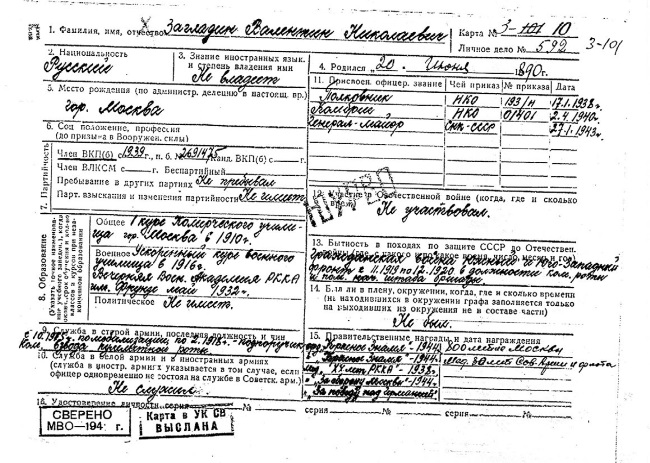 1. Фамилия, имя, отчество Загладин Валентин Николаевич
Карта № 3-10
Личное дело № 592
3-101
2. Национальность
Русский
3. Знание иностранных язык. и степень владения ими
Не владеет
4. Родился "20" Июня 1890 г.
5. Место рождения (по администр. делению в настоящ. вр.)
гор. Москва
6. Соц положение, профессия
(до призыва в Вооружен. силы)
11. Присвоен. офицер. звание Чей приказ № приказа Дата
Полковник НКО 193/н 17.1.1938г.
Комбриг НКО 01401 2.4.1940г.
Генерал-майор СНК-СССР 27.1.1943г.
7. Партийность
Член ВКП(б) с 1939 г., п. б. № 2691475 Канд. ВКП(б) с — г.
Член ВЛКСМ с — г. Беспартийный
Пребывание в других партиях Не пребывал
Парт. взыскания и изменения партийности Не имеет
12. Участие в Отечественной войне (когда, где и сколько
Не участвовал.
8. Образование
Общее 1 курс Комерческого училища гор. Москва в 1910г.
Военное Ускоренный курс военного
училища в 1916г.
Военная Академия РККА
им. Фрунзе 1932г.
Политическое Не имеет.
13. Бытность в походах по защите СССР до Отечествен.
Юго-Западный
с 11.1919 по 12.1920 в должности ком. роты
штаба бригады.
14. Был ли в плену, окружении, когда, где и сколько времени
(на находившихся в окружении графа заполняется только
на выходивших из окружения не в составе части)
Не был.
9. Служба в старой армии, последняя должность и чин
с 10.1915г. по мобилизации по 2.1918г. Подпоручик
пулеметной роты
10. Служба в белой армии и в иностранных армиях
(служба в иностр. армиях указывается в том случае, если
офицер одновременно не состоял на службе в Советск. арм.)
Не служил.
15. Правительственные награды и дата награждения
"Красное Знамя"-1944г. 800 летие Москвы
"Красное Знамя"-1944г. мед. 30 лет Сов. Армии и флота
мед. "XX лет РККА"-1938г.
"За оборону Москвы"-1944г.
"За победу над Германией"
16. Удостоверение личности серия № серия № серия №
СВЕРЕНО
МВО—194 г.
Карта в УК СВ
ВЫСЛАНА